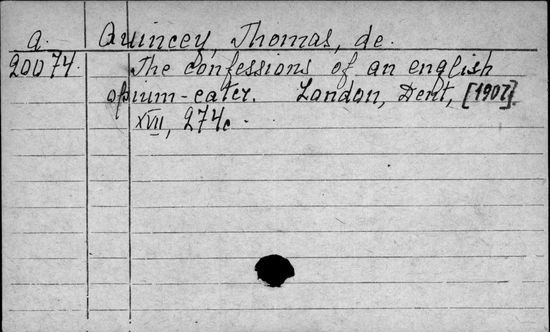 a. Quincey, Thomas, de.
20074. The confessions of an english
opium-eater. London, Dent, [1907].
XVII, 274c.